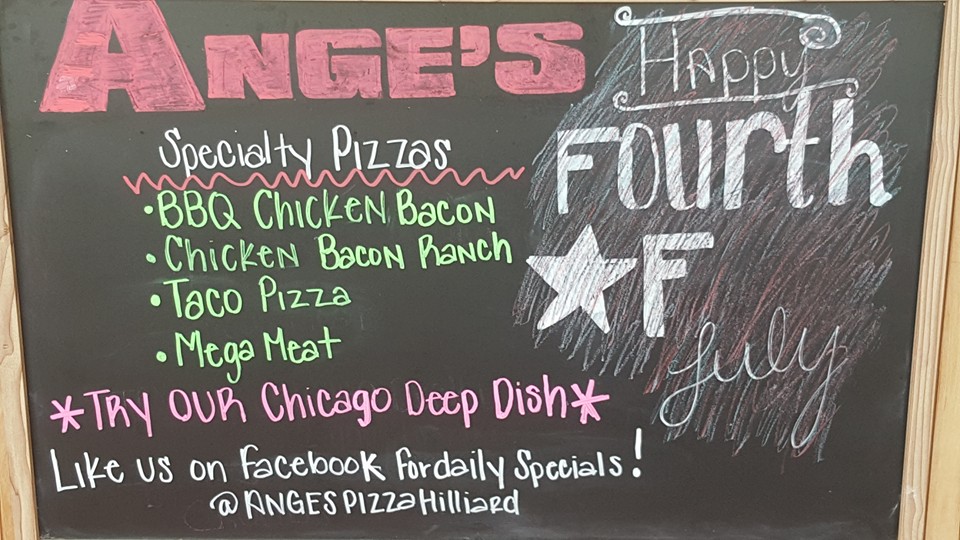 ANGE'S
Specialty Pizzas
•BBQ Chicken Bacon
•Chicken Bacon Ranch
•Taco Pizza
•Mega Meat
*Try our Chicago Deep Dish*
Like us on Facebook For daily Specials!
@ANGESPIZZAHilliard
Happy
Fourth
★F
July